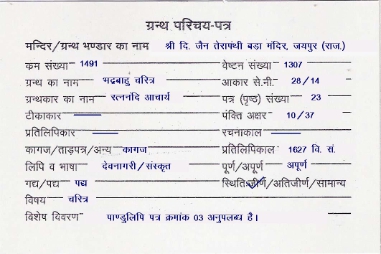 ग्रन्थ परिचय-पत्र
मन्दिर/ग्रन्थ भण्डार का नाम श्री दि. जैन तेरापंथी बड़ा मंदिर, जयपुर (राज.)
क्रम संख्या 1491 वेष्टन संख्या 1307
ग्रन्थ का नाम भद्रबाहु चरित्र आकार से.मी. 28/14
ग्रन्थकार का नाम रत्ननंदि आचार्य पत्र (पृष्ठ) संख्या 23
टीकाकार पंक्ति अक्षर 10/37
प्रतिलिपिकार रचनाकाल
कागज/ताड़पत्र/अन्य कागज प्रतिलिपिकाल 1627 वि. सं.
लिपि व भाषा देवनागरी/संस्कृत पूर्ण/अपूर्ण अपूर्ण
गद्य/पद्य पद्य स्थिति-जीर्ण/अतिजीर्ण/सामान्य
विषय चरित्र
विशेष विवरण पाण्डुलिपि पत्र क्रमांक 03 अनुपलब्ध है।